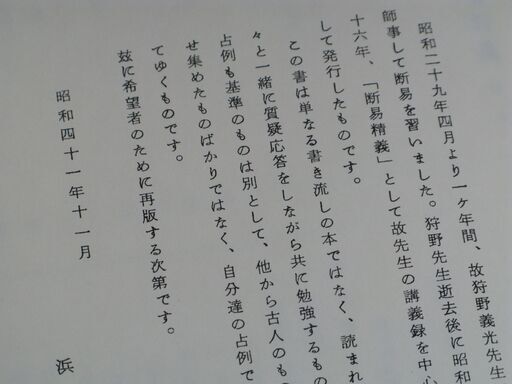 昭和二十九年四月より一ヶ年間、故狩野義光先生
師事して断易を習いました。狩野先生逝去後に昭和
十六年、「断易精義」として故先生の講義録を中心
して発行したものです。
この書は単なる書き流しの本ではなく、読まれ
々と一緒に質疑応答をしながら共に勉強するもの
占例も基準のものは別として、他から古人のもの
せ集めたものばかりではなく、自分達の占例で
てゆくものです。
玆に希望者のために再版する次第です。
昭和四十一年十一月
浜